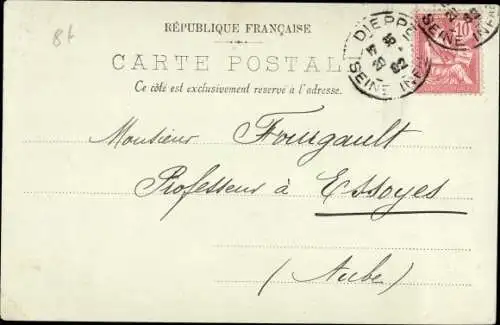 8f
RÉPUBLIQUE FRANÇAISE
CARTE POSTAL
Ce côté est exclusivement réservé à l'adresse.
DIEPP
SEINE INF
10
SEINE INF
Monsieur Fourgault
Professeur à Essoyes
(Aube)